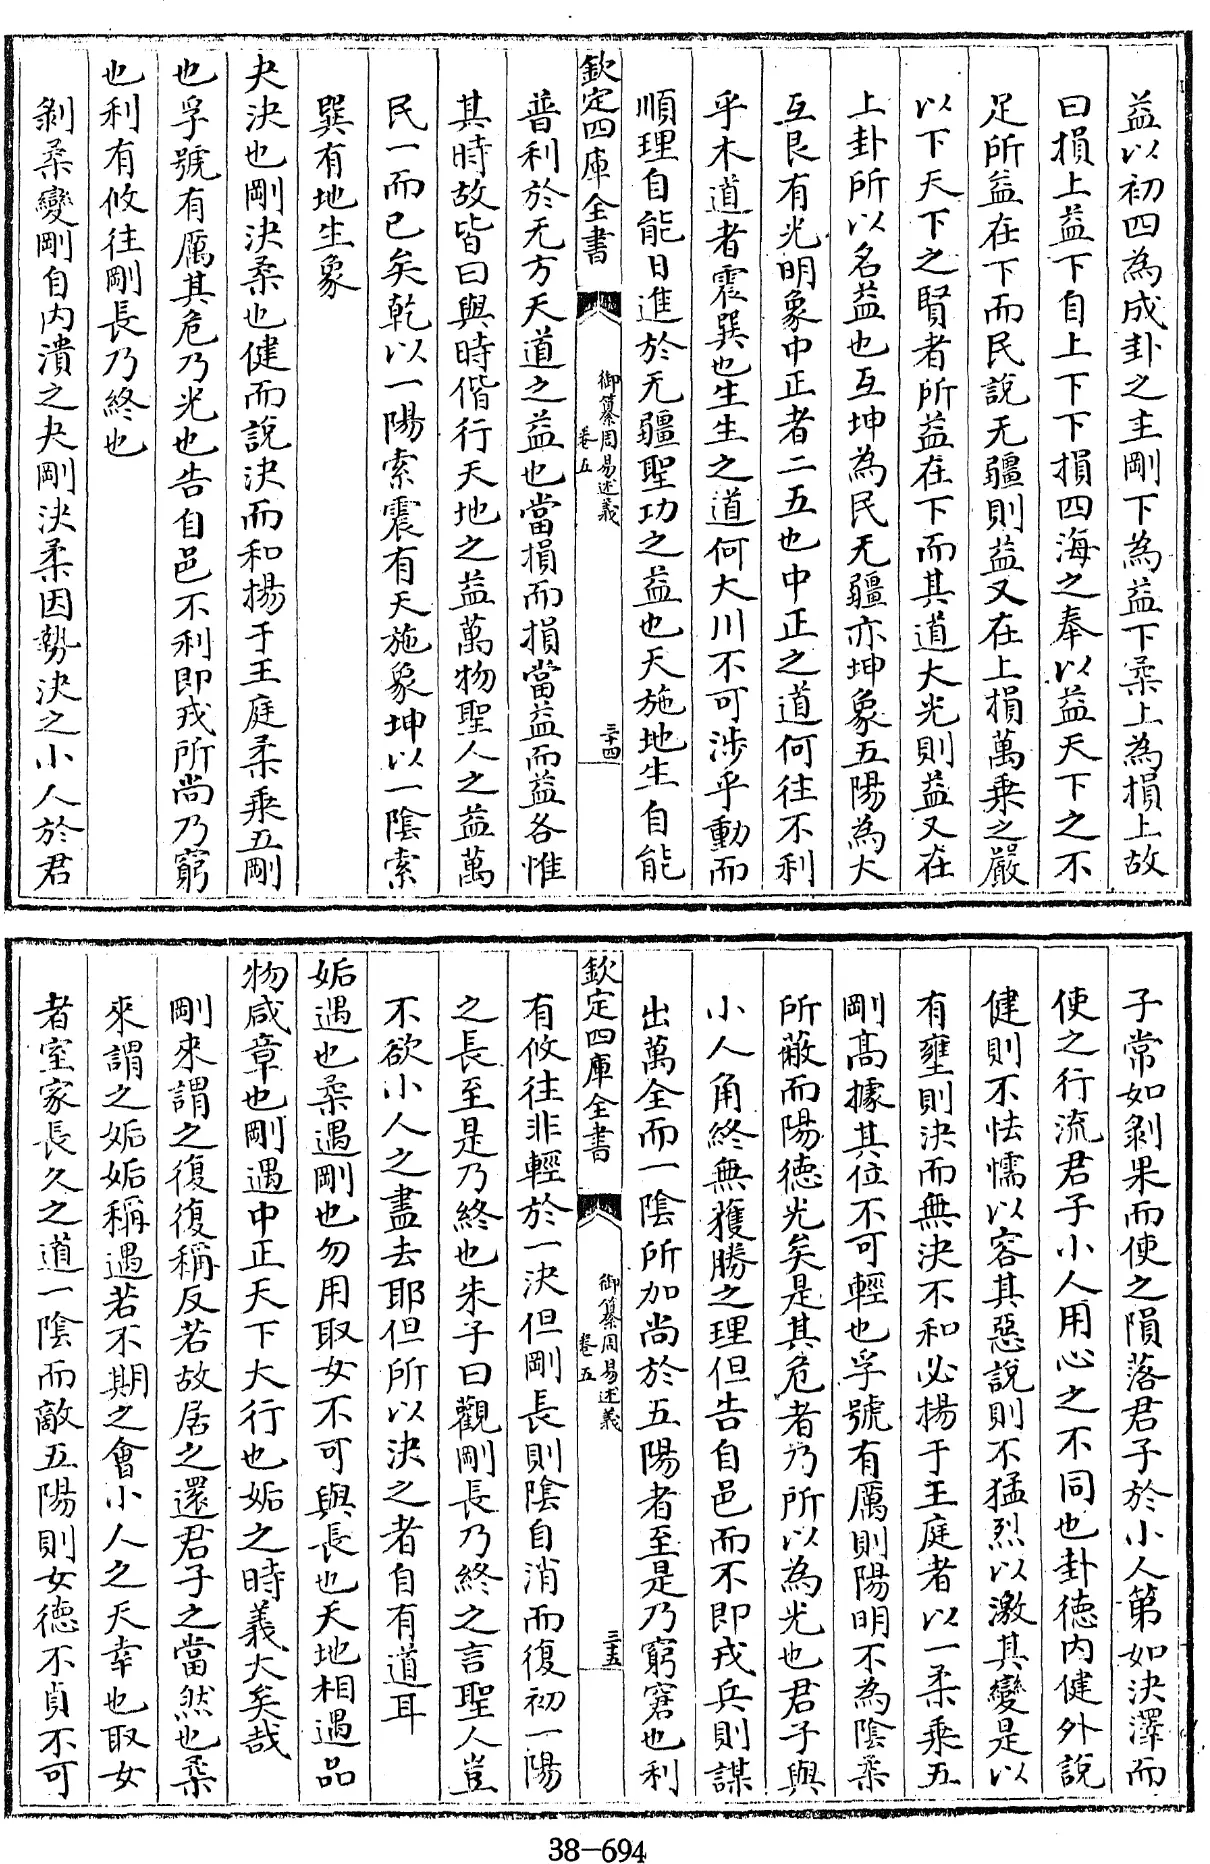 益以初四為成卦之主剛下為益下柔上為損上故
曰損上益下自上下下損四海之奉以益天下之不
足所益在下而民說无疆則益又在上損萬乘之嚴
以下天下之賢者所益在下而其道大光則益又在
上卦所以名益也互坤為民无疆亦坤象五陽為大
互艮有光明象中正者二五也中正之道何往不利
乎木道者震巽也生生之道何大川不可涉乎動而
順理自能日進於无疆聖功之益也天施地生自能
欽定四庫全書 御纂周易述義 卷五 三十四
普利於无方天道之益也當損而損當益而益各惟
其時故皆曰與時偕行天地之益萬物聖人之益萬
民一而已矣乾以一陽索震有天施象坤以一陰索
巽有地生象
夬決也剛決柔也健而說決而和揚于王庭柔乘五剛
也孚號有厲其危乃光也告自邑不利即戎所尚乃窮
也利有攸往剛長乃終也
剝柔變剛自內潰之夬剛決柔因勢決之小人於君
子常如剝果而使之隕落君子於小人第如決澤而
使之行流君子小人用心之不同也卦德內健外說
健則不怯懦以容其惡說則不猛烈以激其變是以
有壅則決而無決不和必揚于王庭者以一柔乘五
剛高據其位不可輕也孚號有厲則陽明不為陰柔
所蔽而陽德光矣是其危者乃所以為光也君子與
小人角終無獲勝之理但告自邑而不即戎兵則謀
出萬全而一陰所加尚於五陽者至是乃窮窘也利
欽定四庫全書 御纂周易述義 卷五 三十五
有攸往非輕於一決但剛長則陰自消而復初一陽
之長至是乃終也朱子曰觀剛長乃終之言聖人豈
不欲小人之盡去耶但所以決之者自有道耳
姤遇也柔遇剛也勿用取女不可與長也天地相遇品
物咸章也剛遇中正天下大行也姤之時義大矣哉
剛來謂之復復稱反若故居之還君子之當然也柔
來謂之姤姤稱遇若不期之會小人之天幸也取女
者室家長久之道一陰而敵五陽則女德不貞不可
38-694